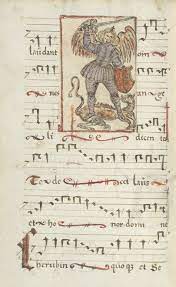 laudant om
nes an ge
li dicen te
Te de cet laus
et ho nor domi ne
Cherubin quoque et Se